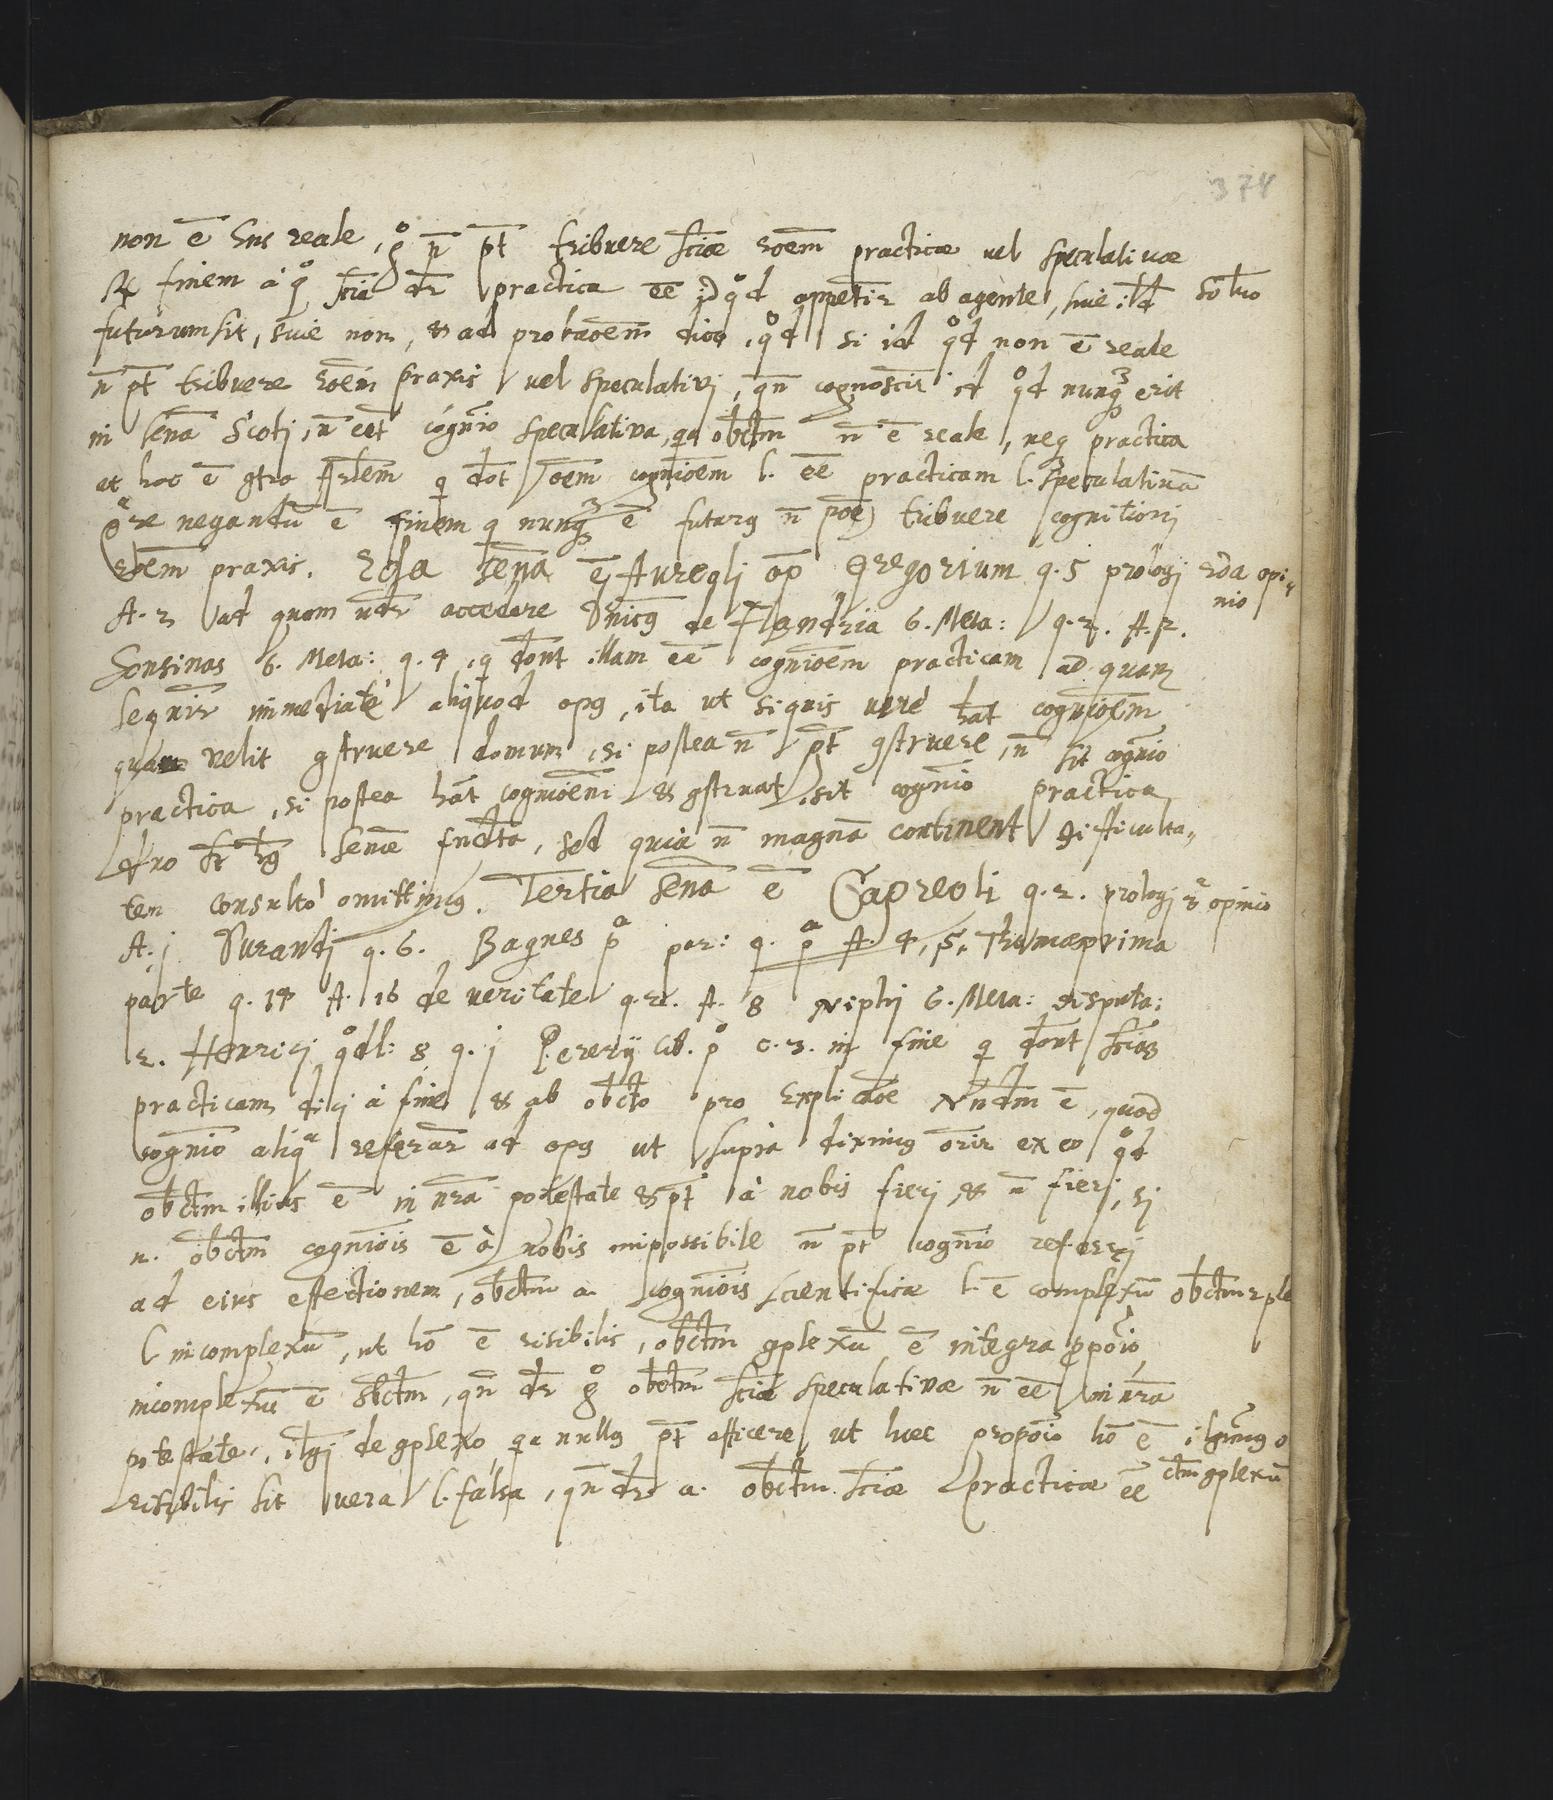 374
non ē Ens reale, gº n̄ pt̄ tribuere sciæ roēm practicæ vel speculativæ
R finem à qº scīa dr̄ practica eē id qºd appetit̄r ab agente, sive illd̄ solutio
futurum sit, sive non, & ad probaoēm dico, qºd si id qºd non ē reale
n̄ pt̄ tribuere roēm praxis vel speculativi, qn̄ cognoscit̄r id qºd nunqȝ erit
in sēna Scoti, n̄ eēt cognīo speculativa, qa obctm̄ n̄ ē reale, neq practica
et hoc ē gtra Arlem̄ q dōt oēm cognioēm l. eē practicam l. speculativā
qare negandū ē finem q nunqȝ ē futurus n̄ poē tribuere cognitioni
roēm praxis. 2da sēna ē Aureoli ap̄ Gregorium q. 5 prologi 2da opi-
nio
A. 2 ad quam vdr̄ accedere Dnic9 de Flandria 6. Meta: q. 2. A. 2.
Sonsinas 6. Meta: q. 4, q dōnt illam eē cognioēm practicam ad quam
sequit̄r immediatè aliquod op9, ita ut siquis verè hāt cognioēm
quam velit gstruere domum, si postea n̄ pt̄ gstruere, n̄ sit cognīo
practica, si postea hāt cognioēm & gstruat, sit cognīo practica
sēnæ fndtā, sed quia n̄ magnā continent difficulta-
tem consultò omittim9. Tertia sēna ē Capreoli q. 2. prologi 3a opinio
A. j Durandi q. 6. Bagnes pa par: q. pa A. 4, S. Thomæ prima
parte q. 14 A. 16 de veritate q. 2. A. 8 Niphi 6. Meta: disputa:
2. Henrici qºdl: 8 q. j Pererij lib. pº c. 3. in fine q dōnt sciam
practicam dici à fine & ab obcto pro explicāoe Nndm̄ ē, quod
cognīo aliqa referat̄r ad op9 ut supra dixim9 orir̄ ex eo qºd
obctm̄ illius ē in nrā potestate & pt̄ à nobis fieri & n̄ fieri, si
n. obctm̄ cognīois ē à nobis impossibile n̄ pt̄ cognīo referri
ad eius effectionem, obctm̄ a. cognīois scientificæ l. ē complexū obctm̄
l incomplexū, ut hō ē risibilis, obctm̄ gplexū ē integra ppōio,
incomplexū ē sbctm̄, qn̄ dr̄ gº obctm̄ sciæ speculativæ n̄ eē in nrā
potestate, de gplexo, qa null9 pt̄ efficere, ut hæc propōio hō ē
risibilis sit vera l. falsa, qn̄ dr̄ a. obctm̄ sciæ practicæ eē ctm̄ gplexū